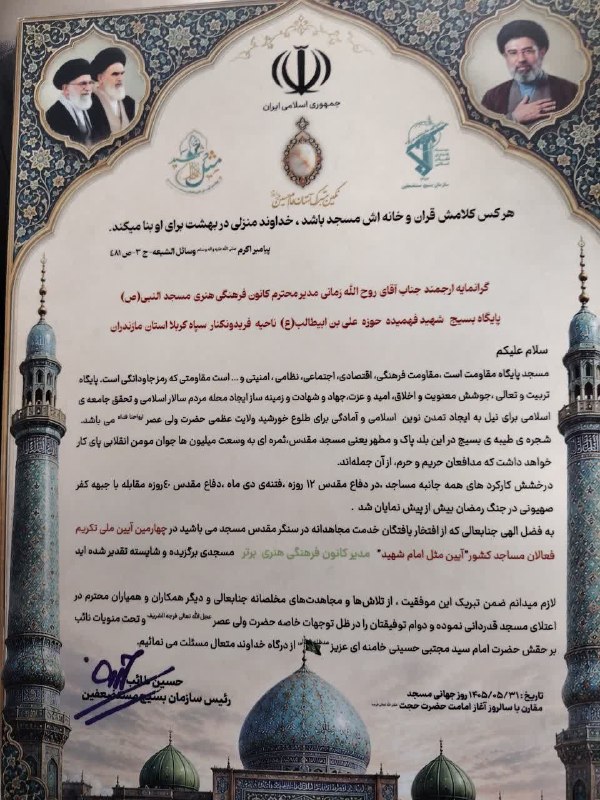 جمهوری اسلامی ایران
هر کس کلامش قران و خانه اش مسجد باشد ، خداوند منزلی در بهشت برای او بنا میکند.
پیامبر اکرم صلی الله علیه واله وسلم وسائل الشیعه - ج ۳ - ص ۴۸۱
گرانمایه ارجمند جناب آقای روح الله زمانی مدیر محترم کانون فرهنگی هنری مسجد النبی(ص)
پایگاه بسیج شهید فهمیده حوزه علی بن ابیطالب(ع) ناحیه فریدونکنار سپاه کربلا استان مازندران
سلام علیکم
مسجد پایگاه مقاومت است ،مقاومت فرهنگی، اقتصادی، اجتماعی، نظامی، امنیتی و... است مقاومتی که رمز جاودانگی است. پایگاه
تربیت و تعالی، جوشش معنویت و اخلاق، امید و عزت، جهاد و شهادت و زمینه ساز ایجاد محله مردم سالار اسلامی و تحقق جامعه ی
اسلامی برای نیل به ایجاد تمدن نوین اسلامی و آمادگی برای طلوع خورشید ولایت عظمی حضرت ولی عصر ارواحنا فداه می باشد.
شجره ی طیبه ی بسیج در این بلد پاک و مطهر یعنی مسجد مقدس،ثمره ای به وسعت میلیون ها جوان مومن انقلابی پای کار
خواهد داشت که مدافعان حریم و حرم، از آن جمله‌اند.
درخشش کارکرد های همه جانبه مساجد ،در دفاع مقدس ۱۲ روزه ،فتنه‌ی دی ماه ،دفاع مقدس ۴۰روزه مقابله با جبهه کفر
صهیونی در جنگ رمضان بیش از پیش نمایان شد .
به فضل الهی جنابعالی که از افتخار یافتگان خدمت مجاهدانه در سنگر مقدس مسجد می باشید در چهارمین آیین ملی تکریم
فعالان مساجد کشور"آیین مثل امام شهید" مدیر کانون فرهنگی هنری برتر مسجدی برگزیده و شایسته تقدیر شده اید
لازم میدانم ضمن تبریک این موفقیت ، از تلاش‌ها و مجاهدت‌های مخلصانه جنابعالی و دیگر همکاران و همیاران محترم در
اعتلای مسجد قدردانی نموده و دوام توفیقتان را در ظل توجهات خاصه حضرت ولی عصر عجل الله تعالی فرجه الشریف و تحت منویات نائب
بر حقش حضرت امام سید مجتبی حسینی خامنه ای عزیز از درگاه خداوند متعال مسئلت می نمائیم.
حسین طائب
رئیس سازمان بسیج مستضعفین
تاریخ : ۱۴۰۵/۰۵/۳۱ روز جهانی مسجد
مقارن با سالروز آغاز امامت حضرت حجت